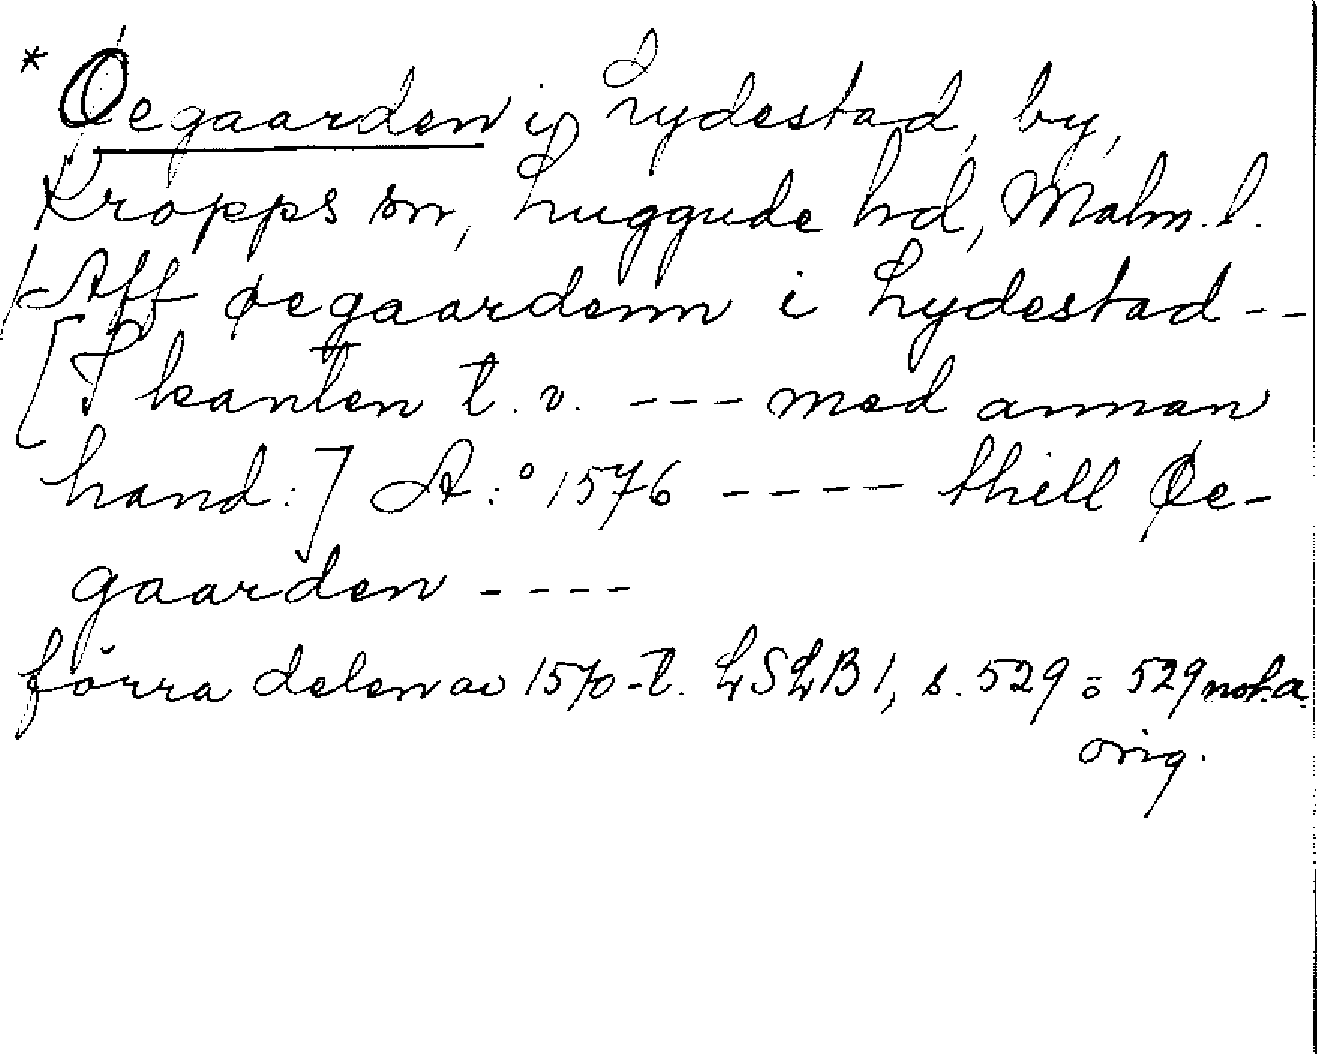 * Øegaarden i Lydestad, by,
Kropps sn, Luggude hd, Malm. l.
Aff øegaardenn i Lydestad --
[I kanten t. v. --- med annan
hand:] A:o 1576 ---- thill Øe-
gaarden ----
förra delen av 1570-t. LSLB 1, s. 529 o 529 not a.
orig.